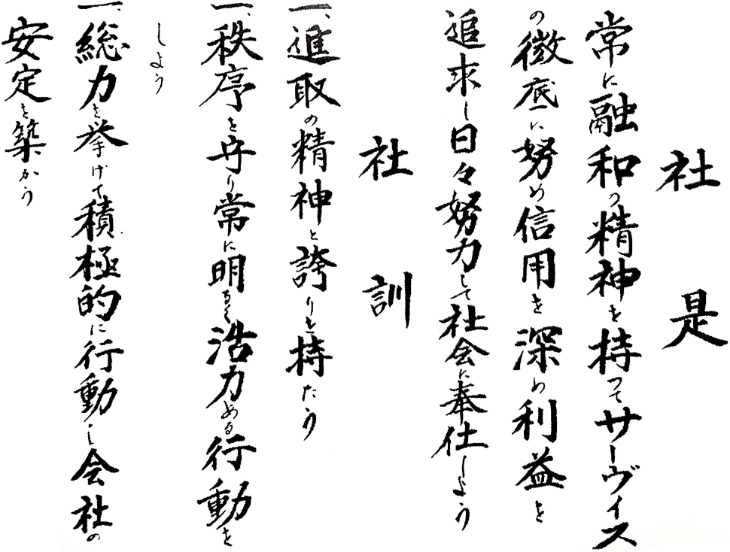 社是
常に融和の精神を持つてサーヴィス
の徹底に努め信用を深め利益を
追求し日々努力して社会に奉仕しよう
社訓
一、進取の精神と誇りを持たう
一、秩序を守り常に明るく活力ある行動を
しよう
一、総力を挙げて積極的に行動し会社の
安定を築かう